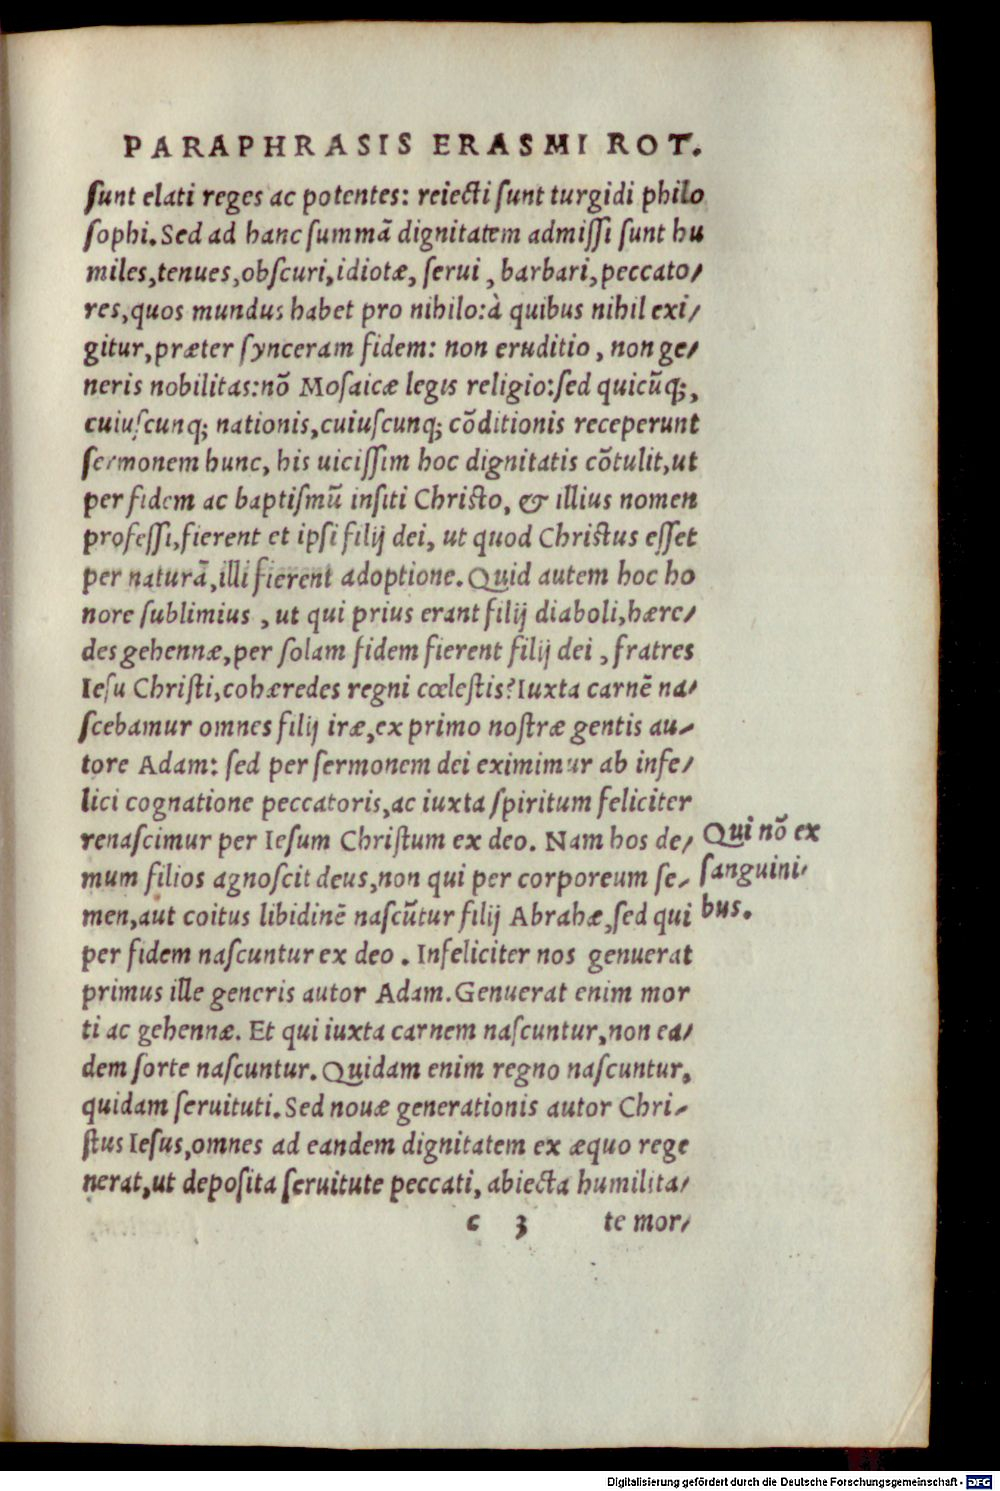 PARAPHRASIS ERASMI ROT.
ſunt elati reges ac potentes: reiecti ſunt turgidi philo
ſophi. Sed ad hanc ſummā dignitatem admiſſi ſunt hu
miles, tenues, obſcuri, idiotæ, ſerui, barbari, peccato/
res, quos mundus habet pro nihilo: à quibus nihil exi/
gitur, præter ſynceram fidem: non eruditio, non ge/
neris nobilitas: nō Moſaicæ legis religio: ſed quicūq;,
cuiuſcunq; nationis, cuiuſcunq; cōditionis receperunt
ſermonem hunc, his uiciſſim hoc dignitatis cōtulit, ut
per fidem ac baptiſmū inſiti Chriſto, & illius nomen
profeſſi, fierent et ipſi filij dei, ut quod Chriſtus eſſet
per naturā, illi fierent adoptione. Quid autem hoc ho
nore ſublimius, ut qui prius erant filij diaboli, hære/
des gehennæ, per ſolam fidem fierent filij dei, fratres
Ieſu Chriſti, cohæredes regni cœleſtis? Iuxta carnē na/
ſcebamur omnes filij iræ, ex primo noſtræ gentis au/
tore Adam: ſed per ſermonem dei eximimur ab infe/
lici cognatione peccatoris, ac iuxta ſpiritum feliciter
renaſcimur per Ieſum Chriſtum ex deo. Nam hos de/
mum filios agnoſcit deus, non qui per corporeum ſe/
men, aut coitus libidinē naſcūtur filij Abrahæ, ſed qui
per fidem naſcuntur ex deo. Infeliciter nos genuerat
primus ille generis autor Adam. Genuerat enim mor
ti ac gehennæ. Et qui iuxta carnem naſcuntur, non ea/
dem ſorte naſcuntur. Quidam enim regno naſcuntur,
quidam ſeruituti. Sed nouæ generationis autor Chri/
ſtus Ieſus, omnes ad eandem dignitatem ex æquo rege
nerat, ut depoſita ſeruitute peccati, abiecta humilita/
c 3 te mor/
Qui nō ex
ſanguini/
bus.
Digitalisierung gefördert durch die Deutsche Forschungsgemeinschaft - DFG